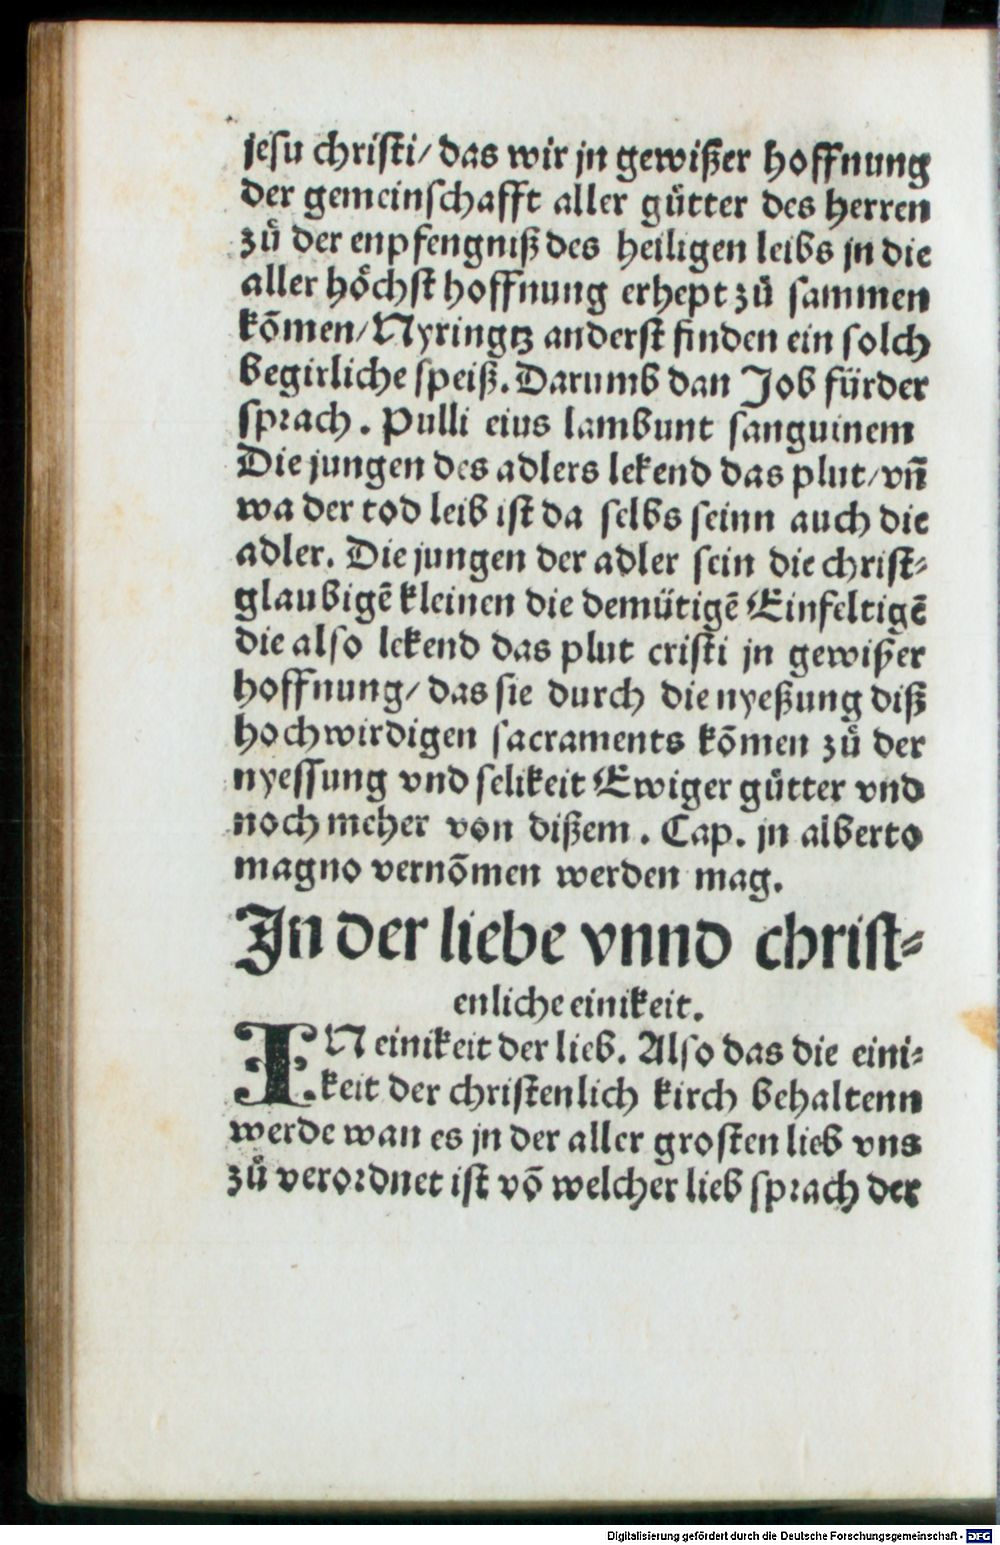 jesu christi/ das wir jn gewißer hoffnung
der gemeinschafft aller gütter des herren
zuͦ der enpfengniß des heiligen leibs jn die
aller hoͤchst hoffnung erhept zuͦ sammen
kōmen/ Nyringtz anderst finden ein solch
begirliche speiß. Darumb dan Job fürder
sprach. Pulli eius lambunt sanguinem
Die jungen des adlers lekend das plut/ vn̄
wa der tod leib ist da selbs seinn auch die
adler. Die jungen der adler sein die christ⸗
glaubigē kleinen die demütigē Einfeltigē
die also lekend das plut cristi jn gewißer
hoffnung/ das sie durch die nyeßung diß
hochwirdigen sacraments kōmen zuͦ der
nyessung vnd selikeit Ewiger gütter vnd
noch meher von dißem. Cap. jn alberto
magno vernōmen werden mag.
In der liebe vnnd christ⸗
enliche einikeit.
IN einikeit der lieb. Also das die eini⸗
keit der christenlich kirch behaltenn
werde wan es jn der aller grosten lieb vns
zuͦ verordnet ist vō welcher lieb sprach der
Digitalisierung gefördert durch die Deutsche Forschungsgemeinschaft - DFG